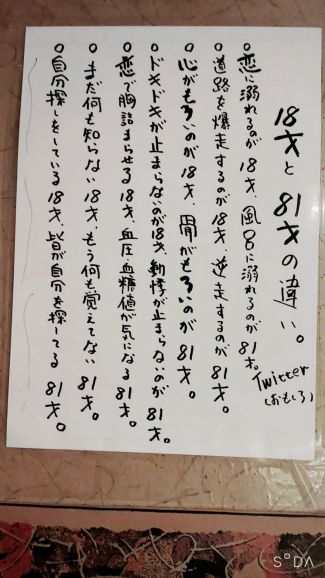 18才と81才の違い。
Twitter
(おもしろ)
○恋に溺れるのが18才、風呂に溺れるのが81才。
○道路を爆走するのが18才、逆走するのが81才。
○心がもろいのが18才、骨がもろいのが81才。
○ドキドキが止まらないのが18才、動悸が止まらないのが81才。
○恋で胸詰まらせる18才、血圧、血糖値が気になる81才。
○まだ何も知らない18才、もう何も覚えてない81才。
○自分探しをしている18才、皆が自分を探してる81才。
SODA